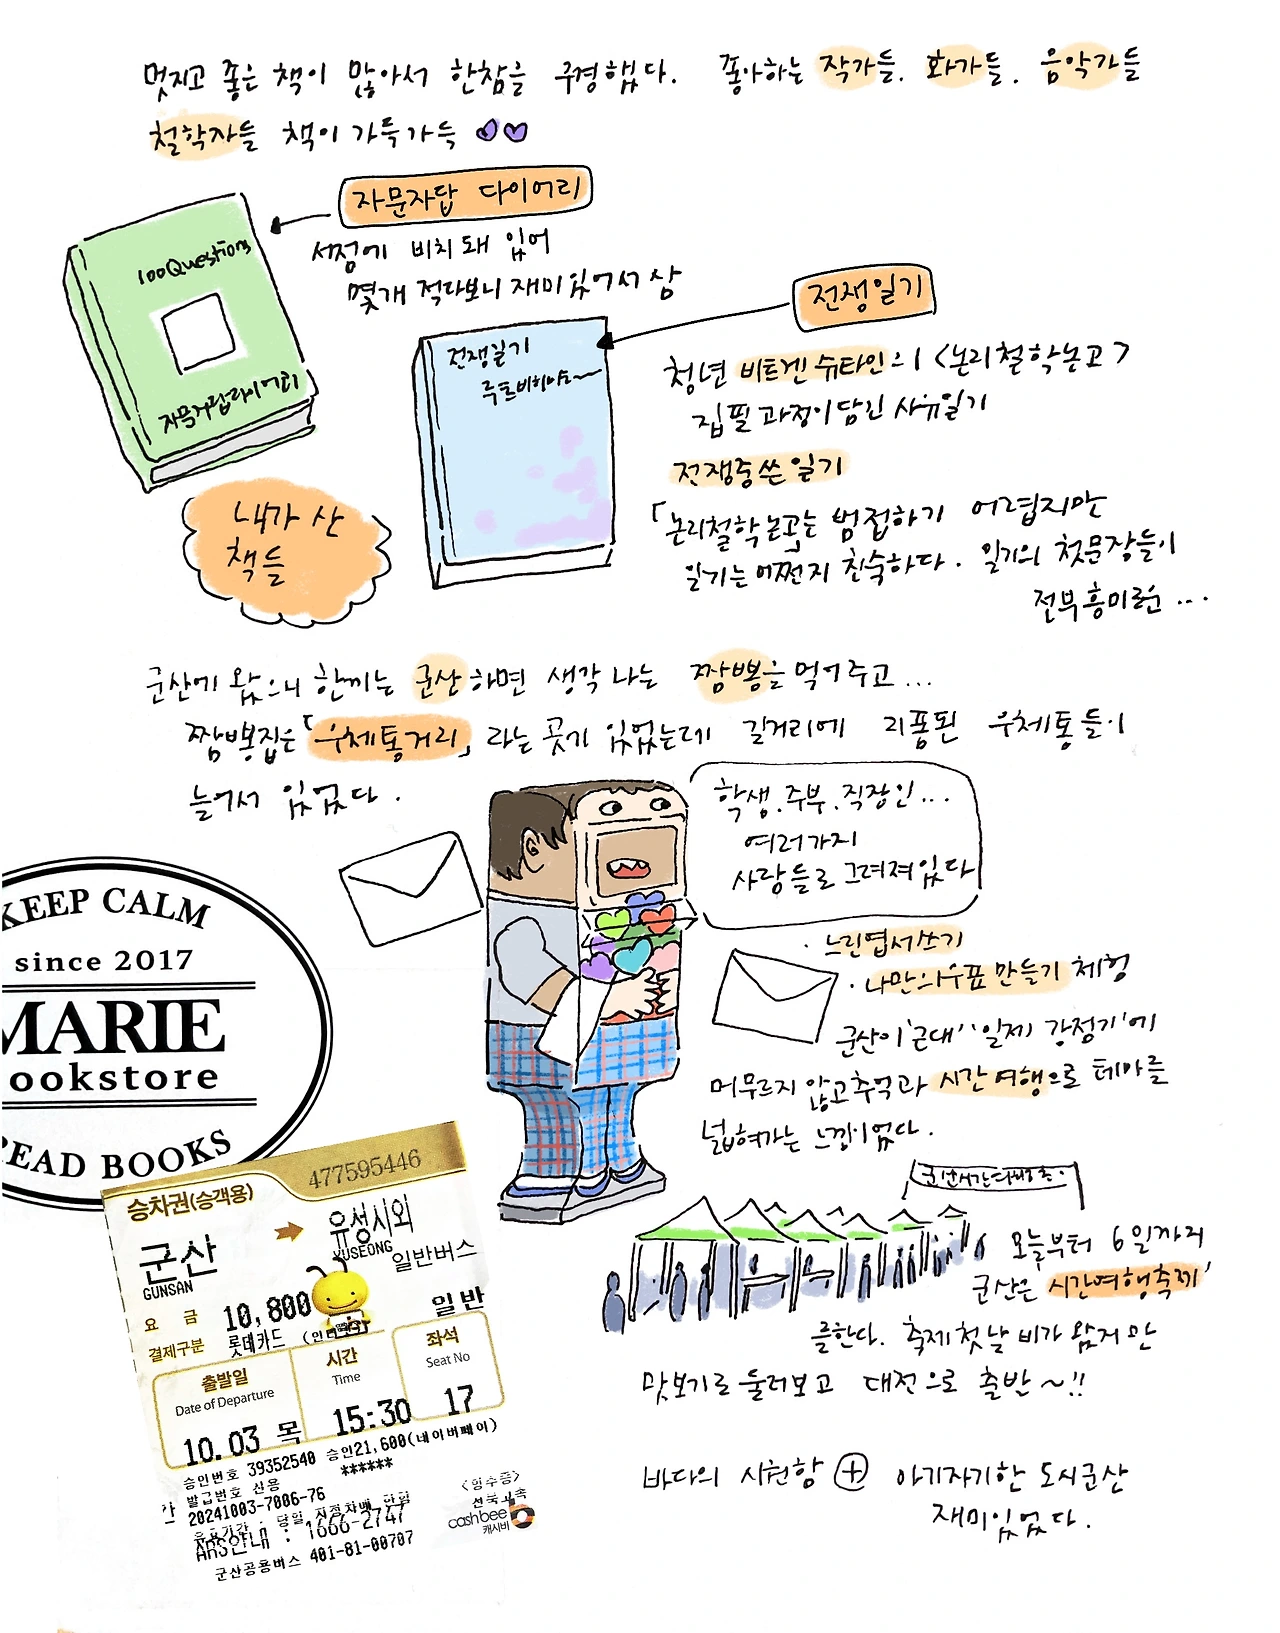 멋지고 좋은 책이 많아서 한참을 구경했다. 좋아하는 작가들. 화가들. 음악가들
철학자들 책이 가득가득
자문자답 다이어리
서점에 비치돼 있어
몇개 적다보니 재미있어서 삼
100Questions
자문자답다이어리
전쟁일기
전쟁일기
청년 비트겐슈타인의 <논리철학논고>
집필과정이 담긴 사유일기
전쟁중 쓴 일기
「논리철학논고」는 범접하기 어렵지만
일기는 어쩐지 친숙하다. 일기의 첫문장들이
전부 흥미로운 ...
내가 산
책들
군산에 왔으니 한끼는 군산하면 생각나는 짬뽕을 먹어주고...
짬뽕집은 「우체통거리」라는 곳에 있었는데 길거리에 리폼된 우체통들이
늘어서 있었다.
학생.주부.직장인...
여러가지
사람들로 그려져있다
· 느린엽서쓰기
· 나만의우표 만들기 체험
군산이 '근대' '일제 강점기'에
머무르지 않고 추억과 시간여행으로 테마를
넓혀가는 느낌이었다.
KEEP CALM
since 2017
MARIE
ookstore
EAD BOOKS
오늘부터 6일까지
군산은 '시간여행축제'
를한다. 축제 첫날 비가 왔지만
맛보기로 둘러보고 대전으로 출발~!!
바다의 시원함 + 아기자기한 도시군산
재미있었다.
승차권(승객용) 477595446
군산 유성시외
GUNSAN YUSEONG 일반버스
요 금 10,800 일반
결제구분 롯데카드
출발일 시간 좌석
Date of Departure Time Seat No
10.03 목 15:30 17
승인번호 39352540 승인21,600(네이버페이)
발급번호 신용 ******
20241003-7006-76 <영수증>
ARS안내 : 1666-2747 cashbee
캐시비
군산공용버스 401-81-00707